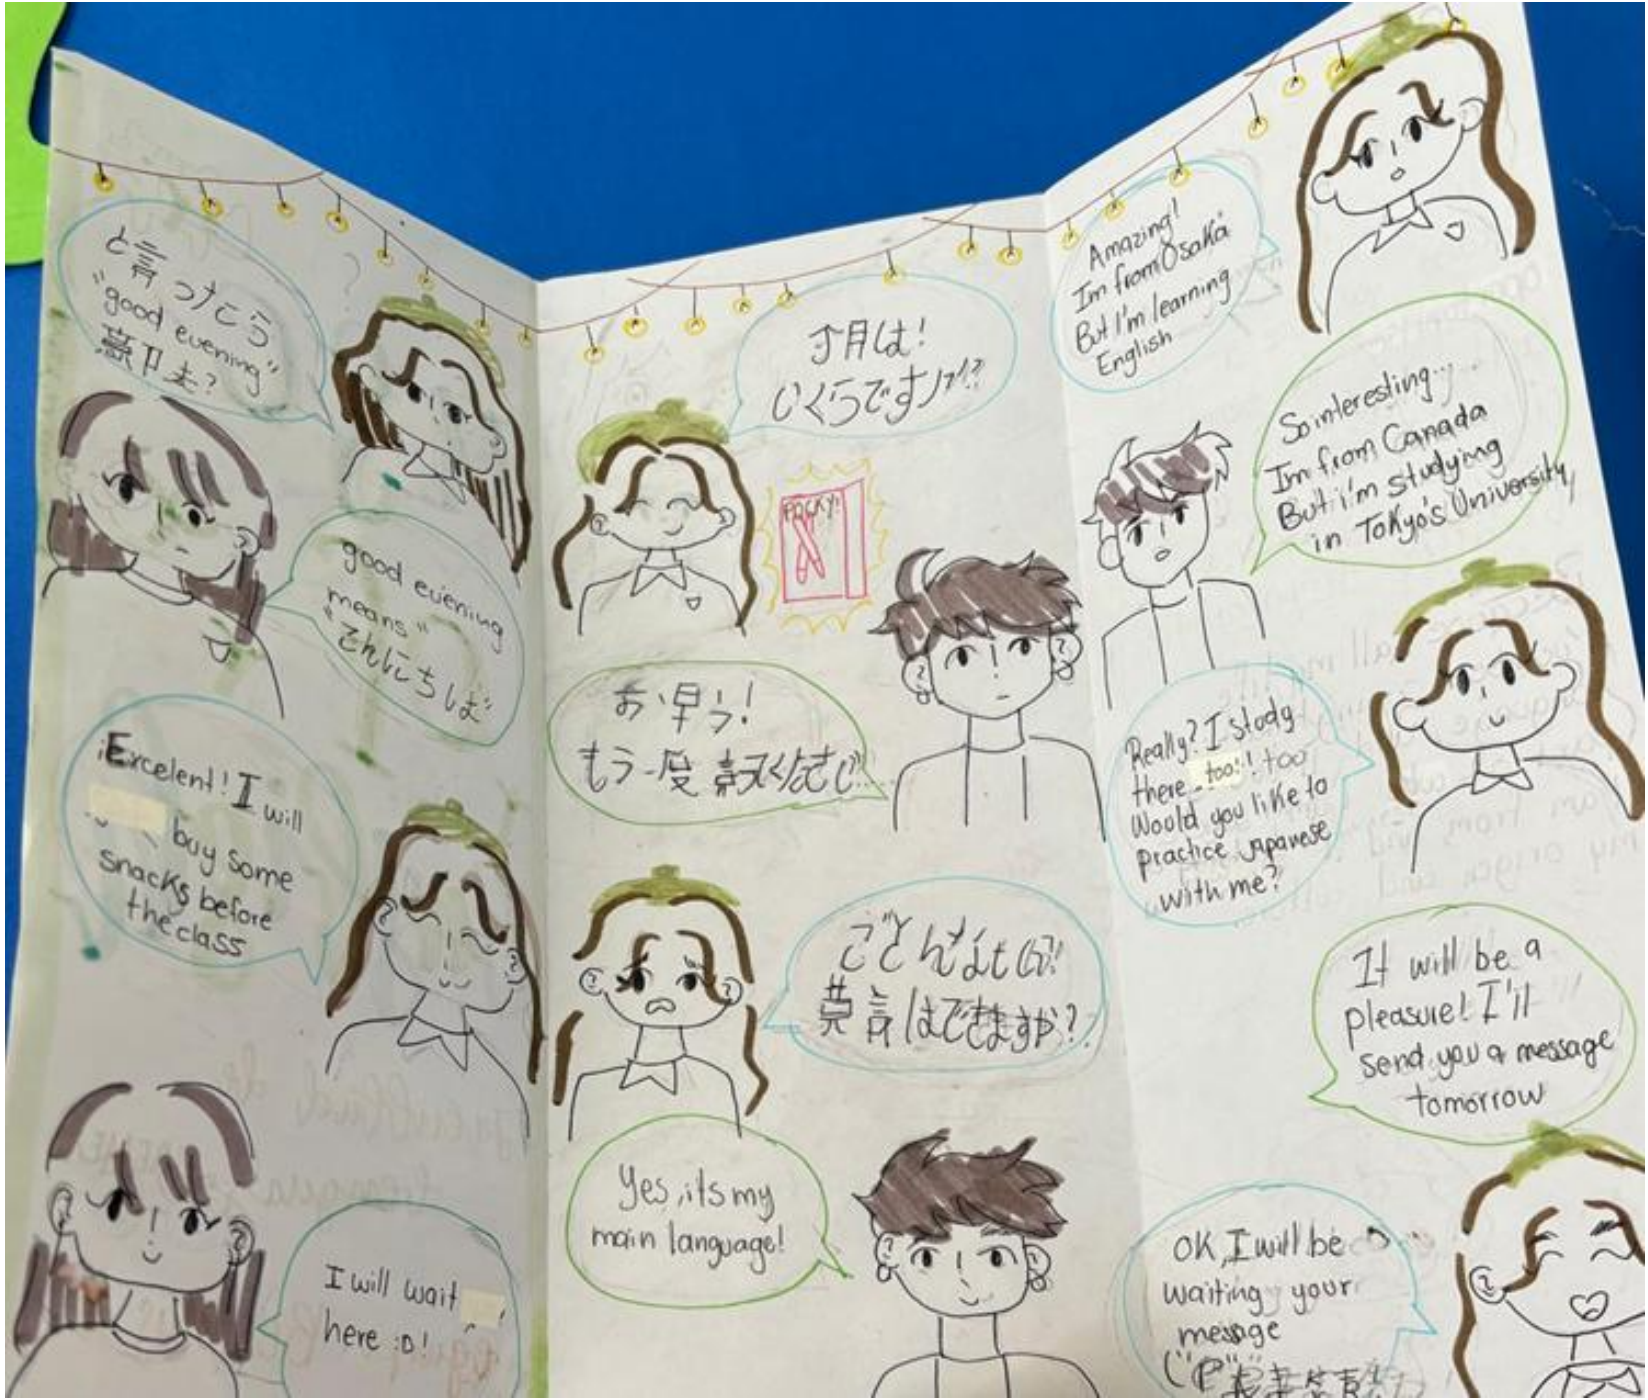 と言ったら
"good evening"
意印夫?
good evening
means"
"こんにちは"
¡Excelent! I will
buy some
snacks before
the class
I will wait
here :D!
寸月は!
いくらですか!?
POCKY!
お早う!
もう一度
ごとんなもい!
英言はできますか?
Yes, its my
main language!
Amazing!
Im from Osaka
But I'm learning
English
So interesting...
Im from Canada
But i'm studying
in Tokyo's University
Really? I study
there too!! too
Would you like to
practice japanese
with me?
It will be a
pleasure! I'll
send you a message
tomorrow
OK, I will be
waiting your
message